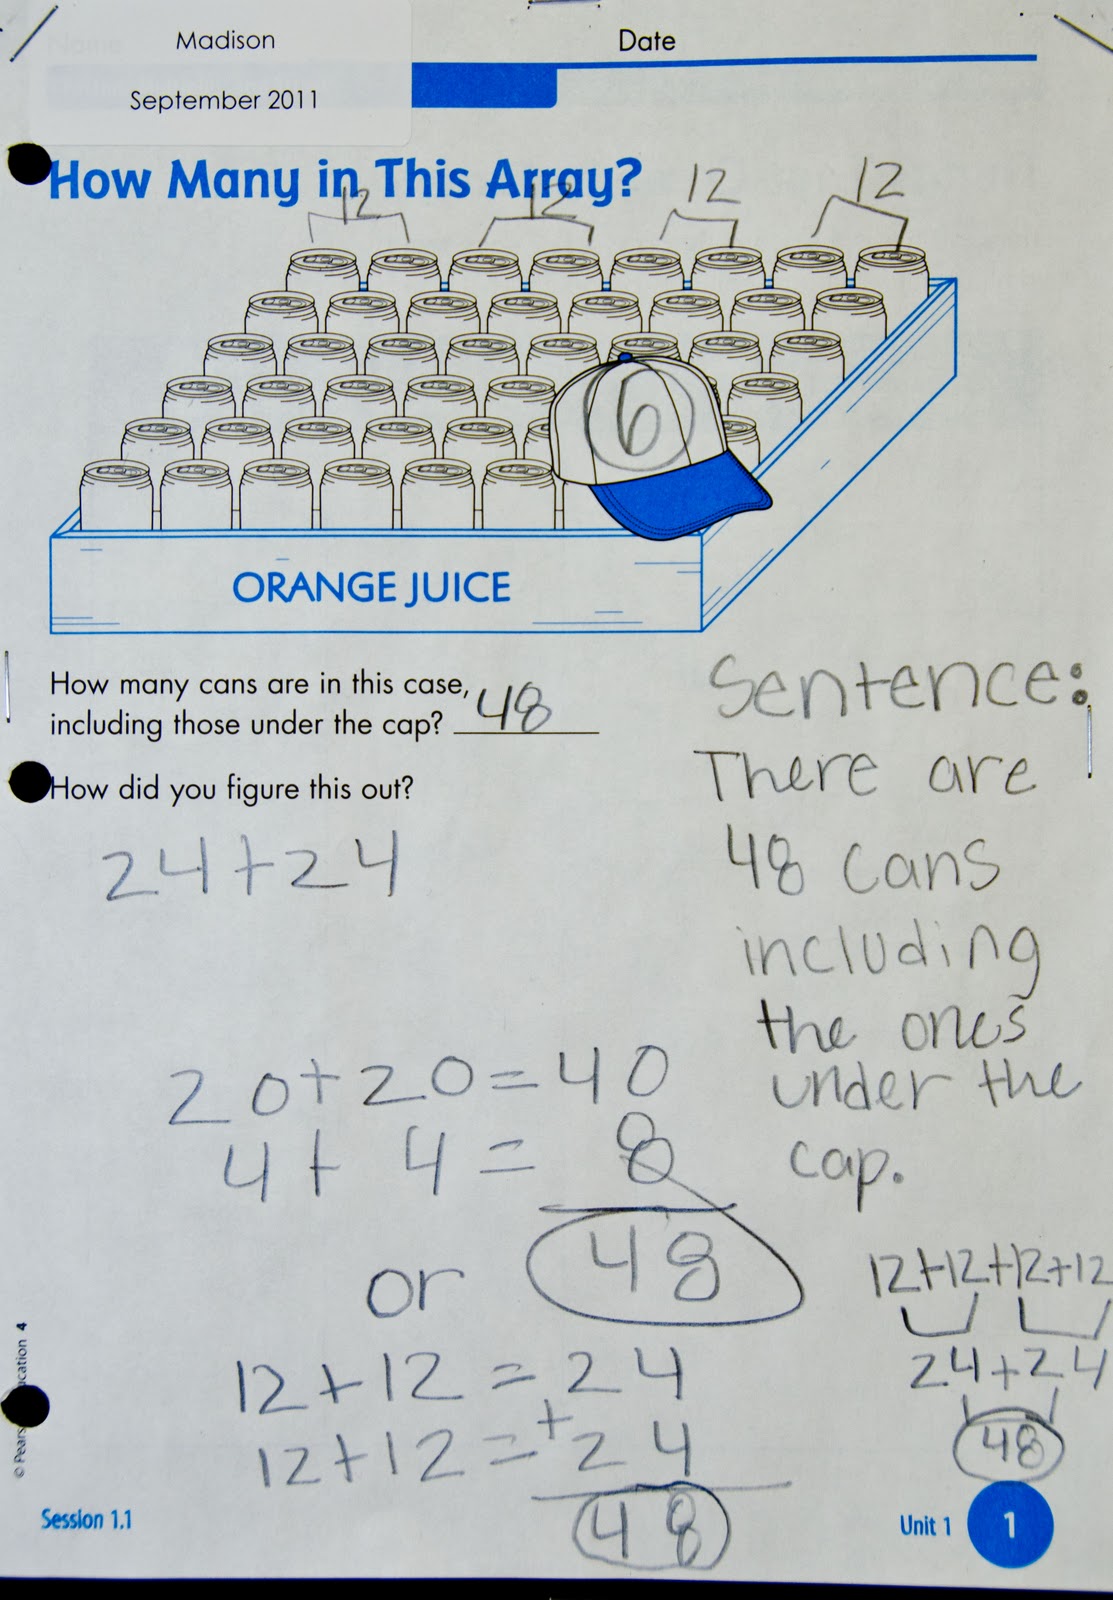 Madison
Date
September 2011
How Many in This Array?
12 12 12 12
6
ORANGE JUICE
How many cans are in this case,
including those under the cap? 48
How did you figure this out?
24+24
20+20=40
4+ 4= 8
48
or
12+12=24
12+12=+24
48
Sentence:
There are
48 cans
including
the ones
under the
cap.
12+12+12+12
24+24
48
cation 4
© Pears
Session 1.1
Unit 1 1